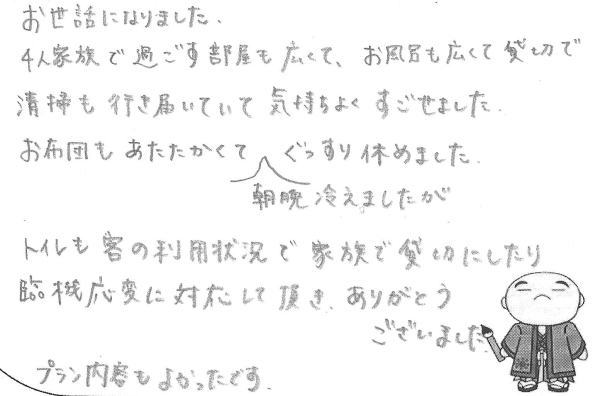 お世話になりました.
4人家族で過ごす部屋も広くて、お風呂も広くて貸切で
清掃も行き届いていて気持ちよくすごせました.
お布団もあたたかくてぐっすり休めました.
朝晩冷えましたが
トイレも客の利用状況で家族で貸切にしたり
臨機応変に対応して頂き、ありがとう
ございました.
プラン内容もよかったです.